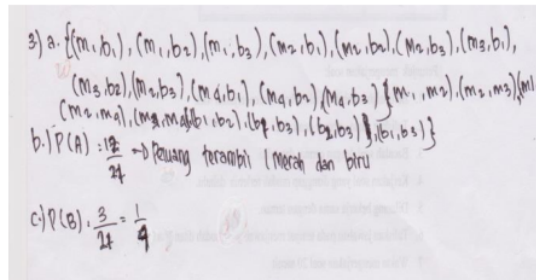 3.) a. {(m₁,b₁), (m₁,b₂), (m₁,b₃), (m₂,b₁), (m₂,b₂), (m₂,b₃), (m₃,b₁),
(m₃,b₂), (m₃,b₃), (m₄,b₁), (m₄,b₂), (m₄,b₃) (m₁,m₂), (m₂,m₃), (m1
(m₂,m₄), (b₁,b₂), (b₂,b₃), (b₁,b₃)}
b.) P(A) : 12/21 → Peluang terambil 1 merah dan biru
c.) P(B) . 3/21 = 1/